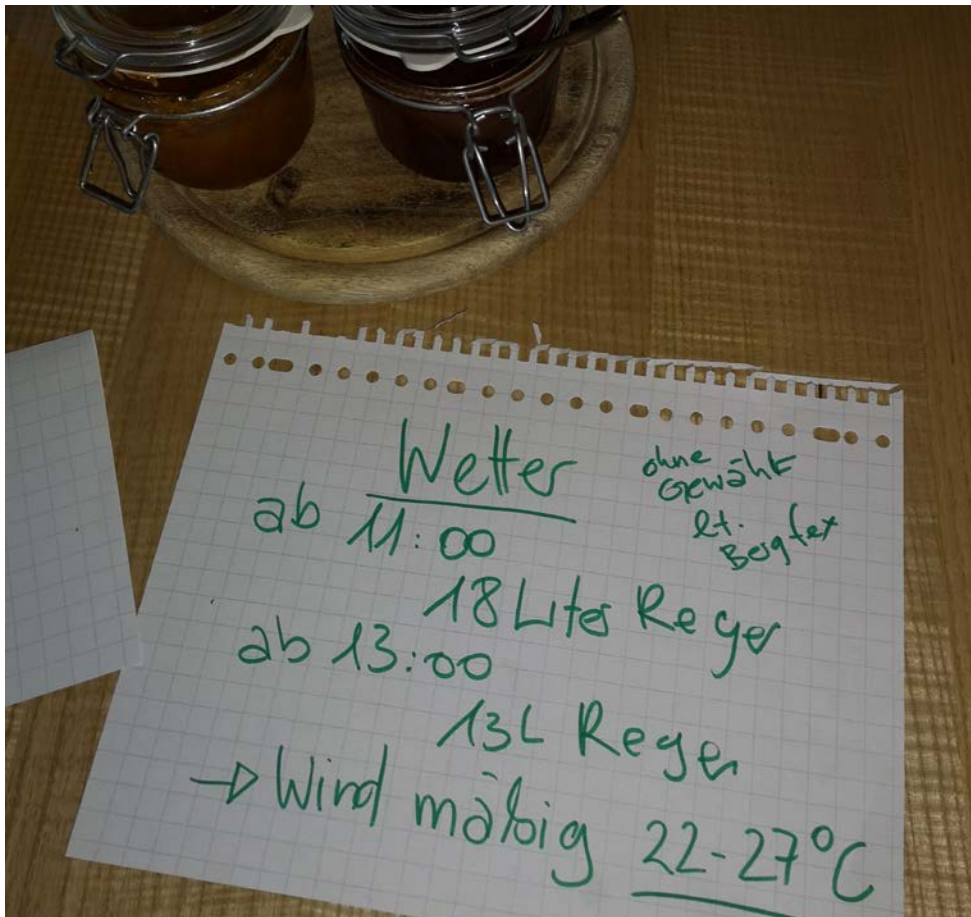 Wetter
ohne
Gewähr
lt.
Bergfex
ab 11:00
18 Liter Regen
ab 13:00
13L Regen
→ Wind mäßig 22-27°C